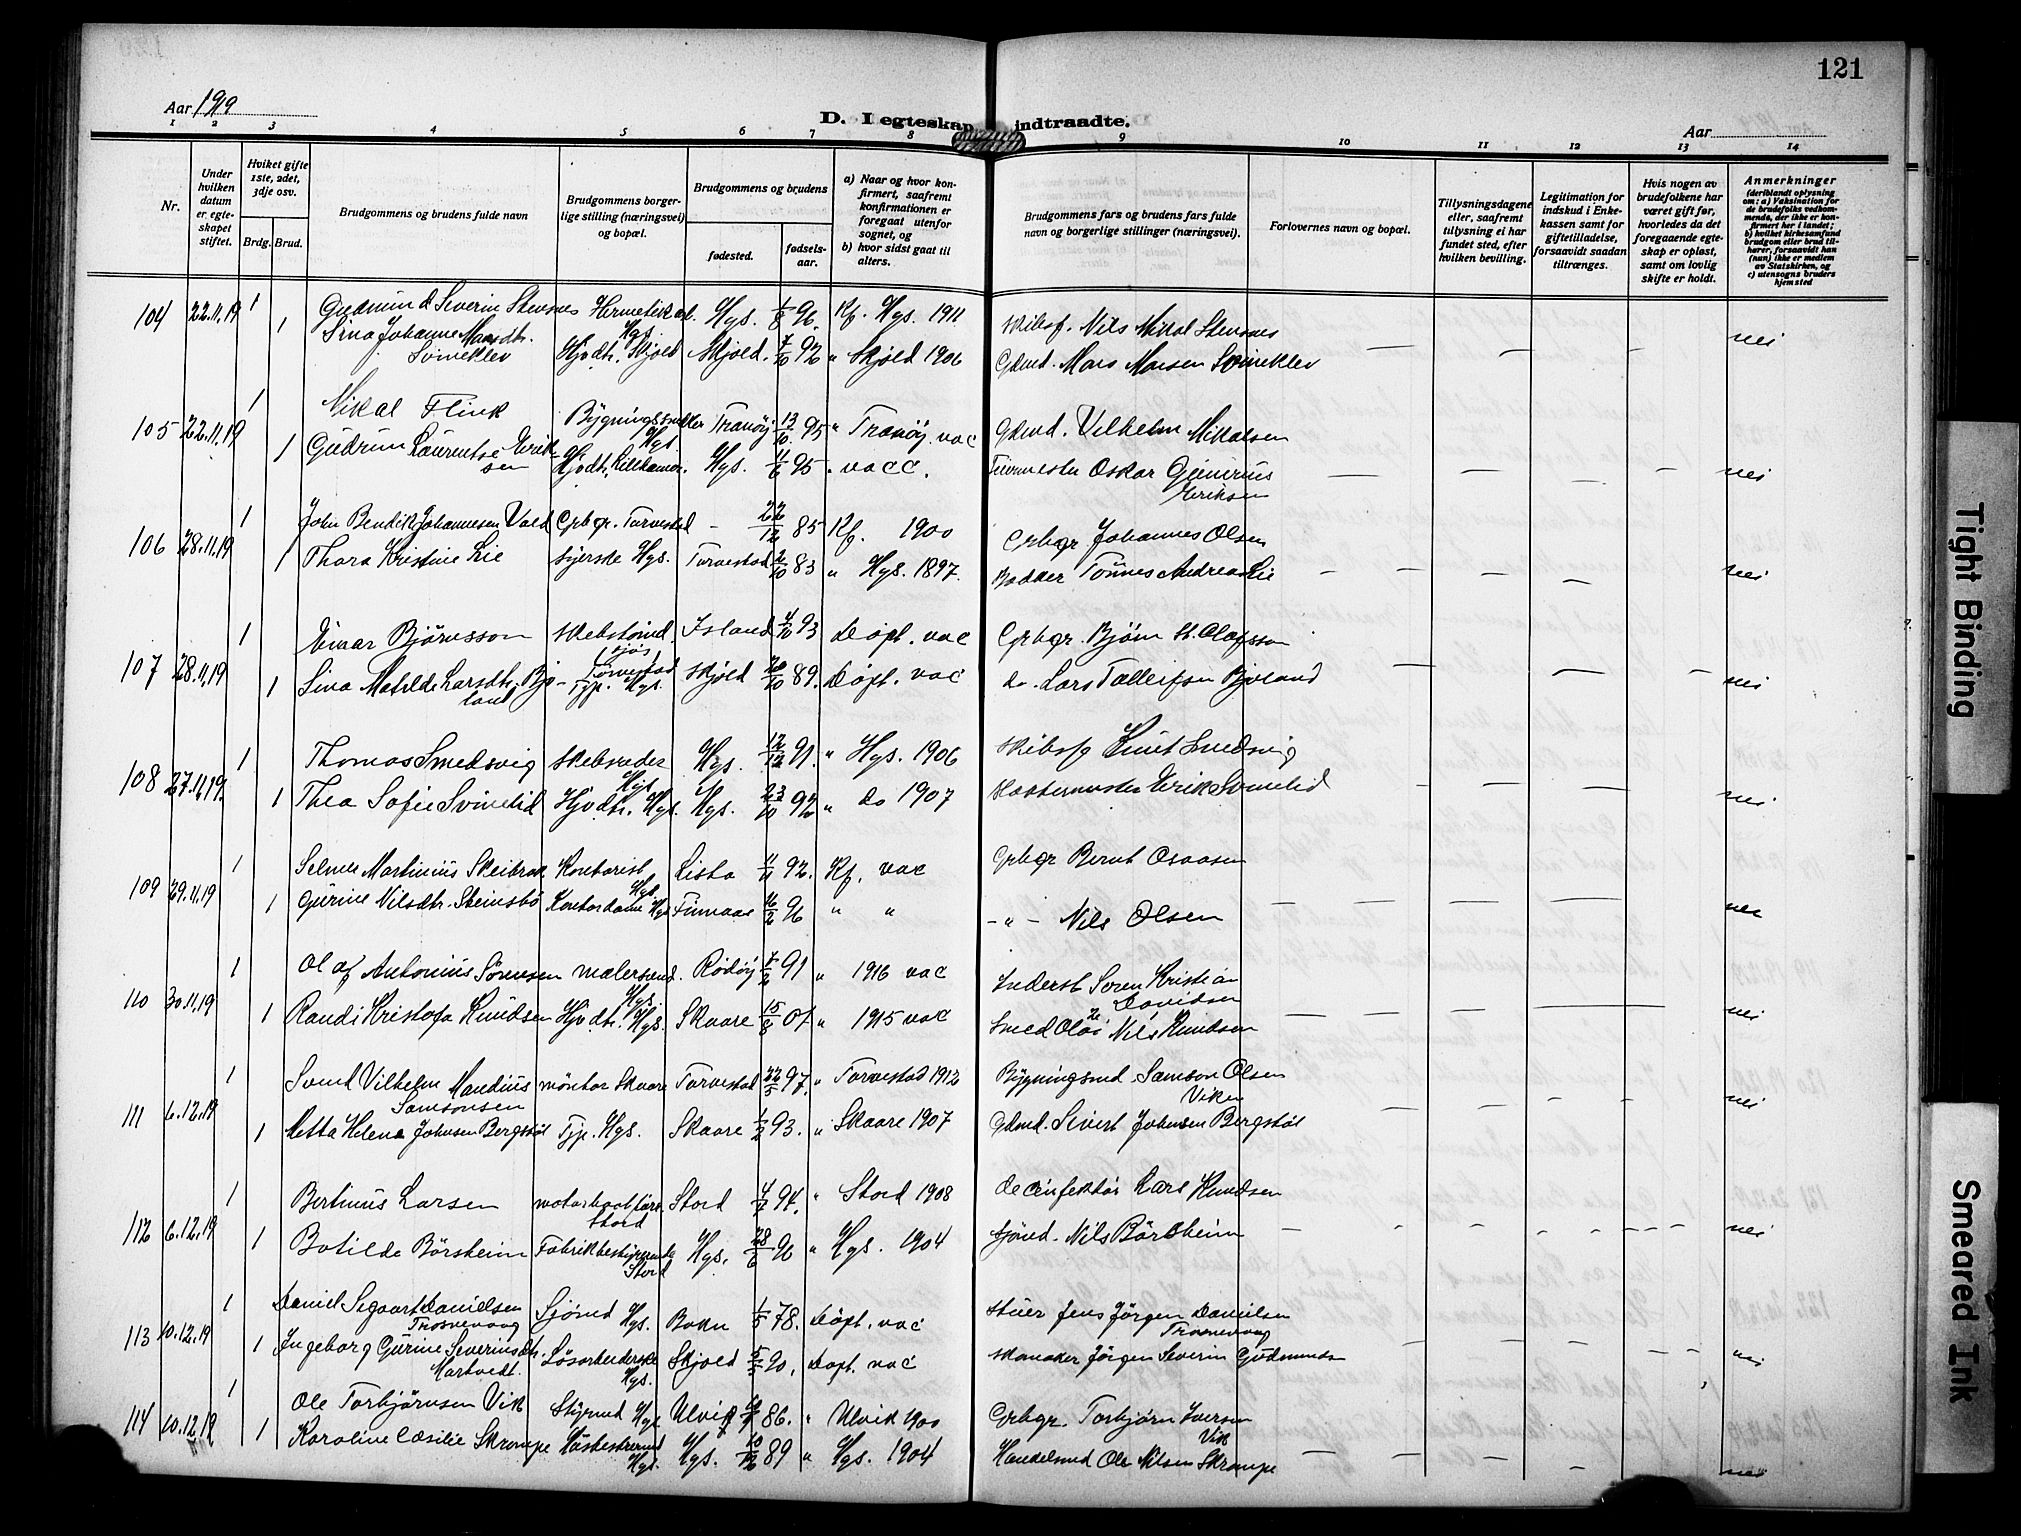 121
Aar 1919
D. I egteskap indtraadte.
Aar
1 2 3 4 5 6 7 8 9 10 11 12 13 14
Nr.
Under hvilken datum er egteskapet stiftet.
Hviket gifte 1ste, 2det, 3dje osv.
Brdg. Brud.
Brudgommens og brudens fulde navn
Brudgommens borgerlige stilling (næringsvei) og bopæl.
Brudgommens og brudens
fødested.
fødselsaar.
a) Naar og hvor konfirmert, saafremt konfirmationen er foregaat utenfor sognet, og
b) hvor sidst gaat til alters.
Brudgommens fars og brudens fars fulde navn og borgerlige stillinger (næringsvei).
Forlovernes navn og bopæl.
Tillysningsdagene eller, saafremt tillysning ei har fundet sted, efter hvilken bevilling.
Legitimation for indskud i Enkekassen samt for giftetilladelse, forsaavidt saadan tiltrænges.
Hvis nogen av brudefolkene har været gift før, hvorledes da det foregaaende egteskap er opløst, samt om lovlig skifte er holdt.
Anmerkninger (deriblandt oplysning om: a) Vaksination for de brudefolks vedkommende, der ikke er konfirmert her i landet; b) hvilket kirkesamfund brudgom eller brud tilhører, forsaavidt han (hun) ikke er medlem av Statskirken, og c) utensogns bruders hjemsted
104 22.11.19 1 Gudmund Severin Stensnes Hgs. 1/8 96. Kf. Hgs. 1911 Skibsf. Nils Mikal Stensnes
1 Sina Johanne Monsdtr. Svineklev Hjvdtr. Skjold Skjold. 7/10 92 " Skjold 1906 Gdmd. Mons Monsen Svineklev nei
105 22.11.19 1 Mikal Flink Bygningssnekker Hgs. Tranøy 13/10 95 " Tranøy. vac Gdmd. Vilhelm Mikalsen
1 Gudrun Lauentse Eriksen Hjvdtr. Hgs. 11/6 95 . vacc. Oskar Gunerius Eriksen nei
106 28.11.19 1 John Bendik Johannesen Vold Grbgr. Torvestad - 22/12 85 Kf. 1900 Grbgr Johannes Olsen
1 Thora Kristine Lie Syerske Hgs. Torvestad 2/10 83 " Hgs. 1897. Bødker Tönnes Andreas Lie nei
107 28.11.19 1 Einar Björnsson Island 4/10 93 Döpt. vac Grbgr. Björn St. Olafsson
1 Sina Matilde Larsdtr. Bjoland Typ. Hgs. Skjold 20/10 89. Döpt. vac do. Lars Tolleifsen Bjoland nei
108 27.11.19. 1 Thomas Smedsvig Skibsreder Hgs. Hgs. 12/12 91. " Hgs. 1906 Skibsfg Knut Smedsvig
1 Thea Sofie Svinelid Hjvdtr. Hgs. Hgs. 23/10 92 " do 1907 Erik Svinelid nei
109 29.11.19 1 Selmer Martinius Skeibrok Kontorist Hgs. Lista 11/11 92. Kf. vac Grbgr Bernt Osaasen
1 Gurine Nilsdtr. Steinsbö Kontordame Hgs Finnaas 16/2 96 " " - " - Nils Olsen nei
110 30.11.19 1 Olaf Antonius Sörensen Malersvend. Hgs. Rödöy 7/2 91 " 1916 vac Inderst Soren Kristian Davidsen
1 Randi Kristofa Knudsen Hjvdtr. Hgs. Skaare 15/8 01 " 1915 vac Smed Olai Nils Knudsen nei
111 6.12.19 1 Svend Vilhelm Mandius Samsonsen montør Skaare Torvestad 22/5 97. " Torvestad 1912 Bygningsmd. Samson Olsen Viken
1 Metta Helene Johnsen Bergstöl Typ. Hgs. Skaare 1/2 93. " Skaare 1907 Gdmd. Sivert Johnsen Bergstöl nei
112 6.12.19 1 Bertinius Larsen Stord Stord 4/7 94. " Stord 1908 Desinfektör Lars Knudsen
1 Botilde Börsheim Fabrikbestyrerinde Stord Hgs. 28/6 96 " Hgs. 1904 Sjömd. Nils Börsheim nei
113 10.12.19 1 Daniel Segaart Danielsen Trosnevaag Sjömd Hgs. Bokn 1/5 78. Döpt. vac Stuer Jens Jörgen Danielsen Trosnevaag
1 Ingeborg Gurine Severinsdtr. Martvedt. Lösarbeiderske Hgs. Skjold 5/5 90. Döpt. vac Skomaker Jörgen Severin Gudmunds nei
114 10.12.19 1 Ole Torbjørnsen Vik Styrmd Hgs Ulvik 86. " Ulvik 1900 Grbgr. Torbjörn Iversen Vik
1 Karoline Cæsilie Skrompe Hgs. Hgs. 10/12 89 " Hgs. 1904 Handelsmd Ole Nilsen Skrompe nei
Tight Binding
Smeared Ink